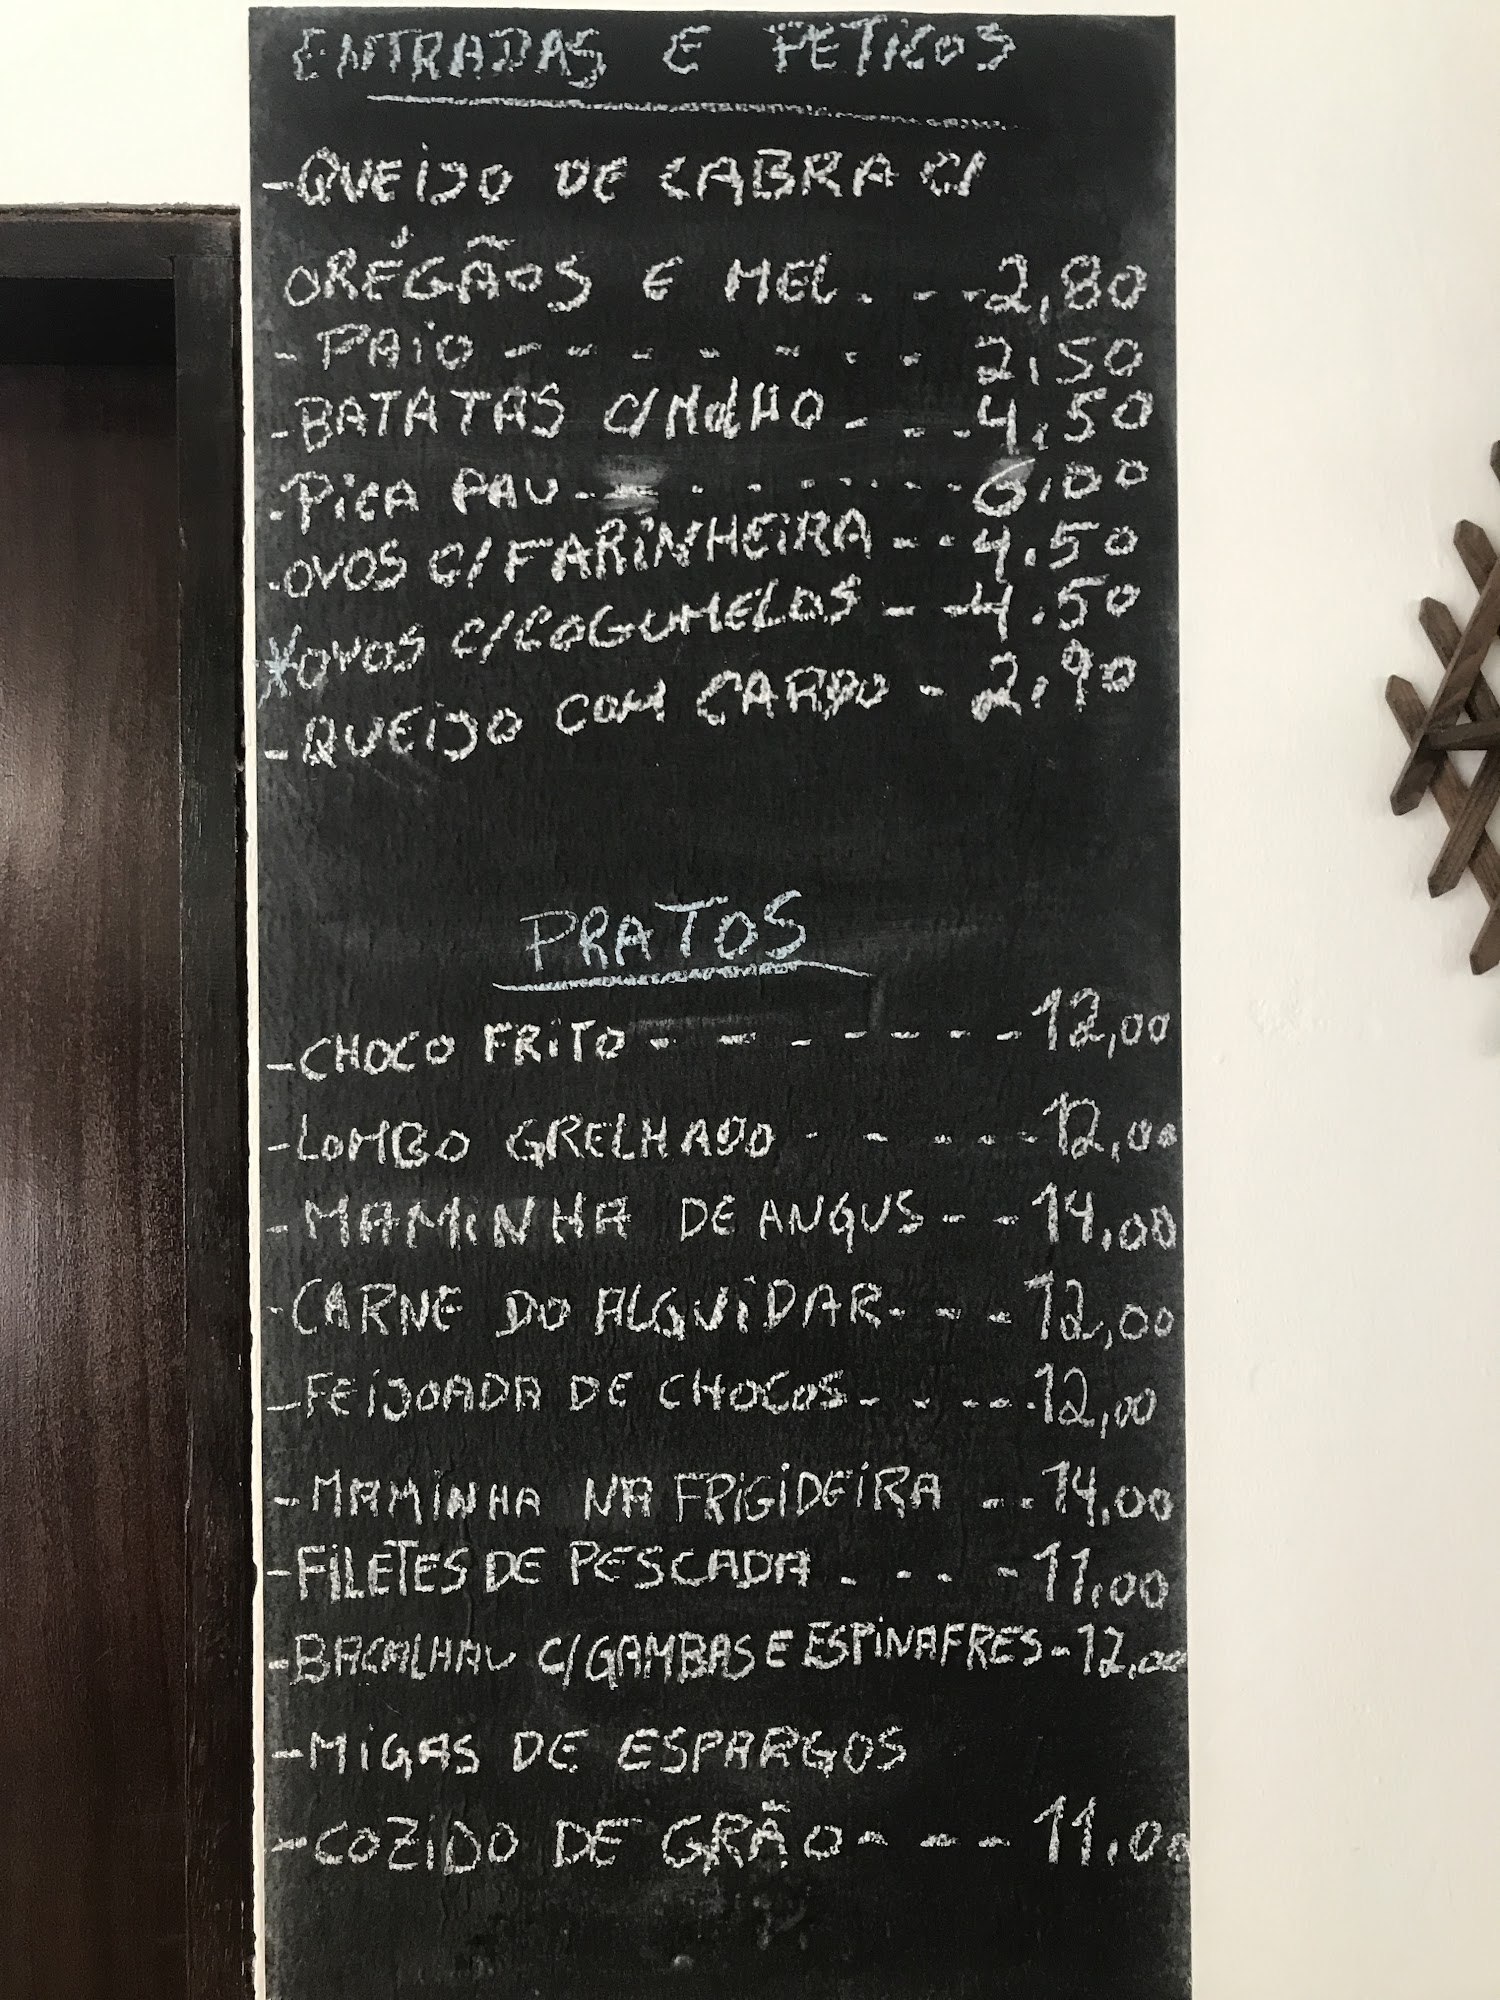 ENTRADAS E PETICOS
-QUEIJO DE CABRA C/
ORÉGÃOS E MEL. - - -2,80
- PAIO - - - - - - - 2,50
-BATATAS C/MOLHO - - - 4.50
-PICA PAU - - - - - - - - - 6,00
-OVOS C/FARINHEIRA - - - 4.50
*OVOS C/COGUMELOS - - 4.50
-QUEIJO COM CARDO - 2.90
PRATOS
-CHOCO FRITO - - - - - - - 12,00
-LOMBO GRELHADO - - - - - - 12,00
-MAMINHA DE ANGUS - - - 14,00
-CARNE DO ALGUIDAR - - - 12,00
-FEIJOADA DE CHOCOS - - - - - 12,00
-MAMINHA NA FRIGIDEIRA - - - 14,00
-FILETES DE PESCADA . - - - 11,00
-BACALHAU C/GAMBAS E ESPINAFRES - 12,00
-MIGAS DE ESPARGOS
-COZIDO DE GRÃO - - - - 11,00